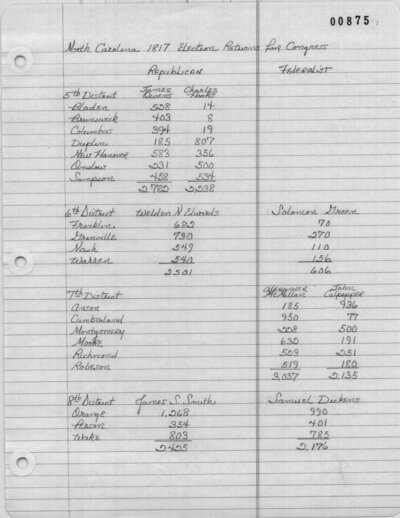 00875
North Carolina 1817 Election Returns for Congress
Republican Federalist
5th District James Owens Charles Hooks
Bladen 528 14
Brunswick 403 8
Columbus 394 19
Duplin 185 807
New Hanover 583 356
Onslow 231 500
Sampson 458 534
2,782 2,238
6th District Weldon N Edwards Solomon Green
Franklin 682 70
Granville 730 270
Nash 549 110
Warren 540 156
2501 606
7th District Alexander McMillan John Culpepper
Anson 185 936
Cumberland 950 77
Montgomery 228 500
Moore 632 191
Richmond 523 251
Robeson 519 180
3,037 2,135
8th District James S. Smith Samuel Dickens
Orange 1,268 990
Person 354 401
Wake 803 785
2,425 2,176